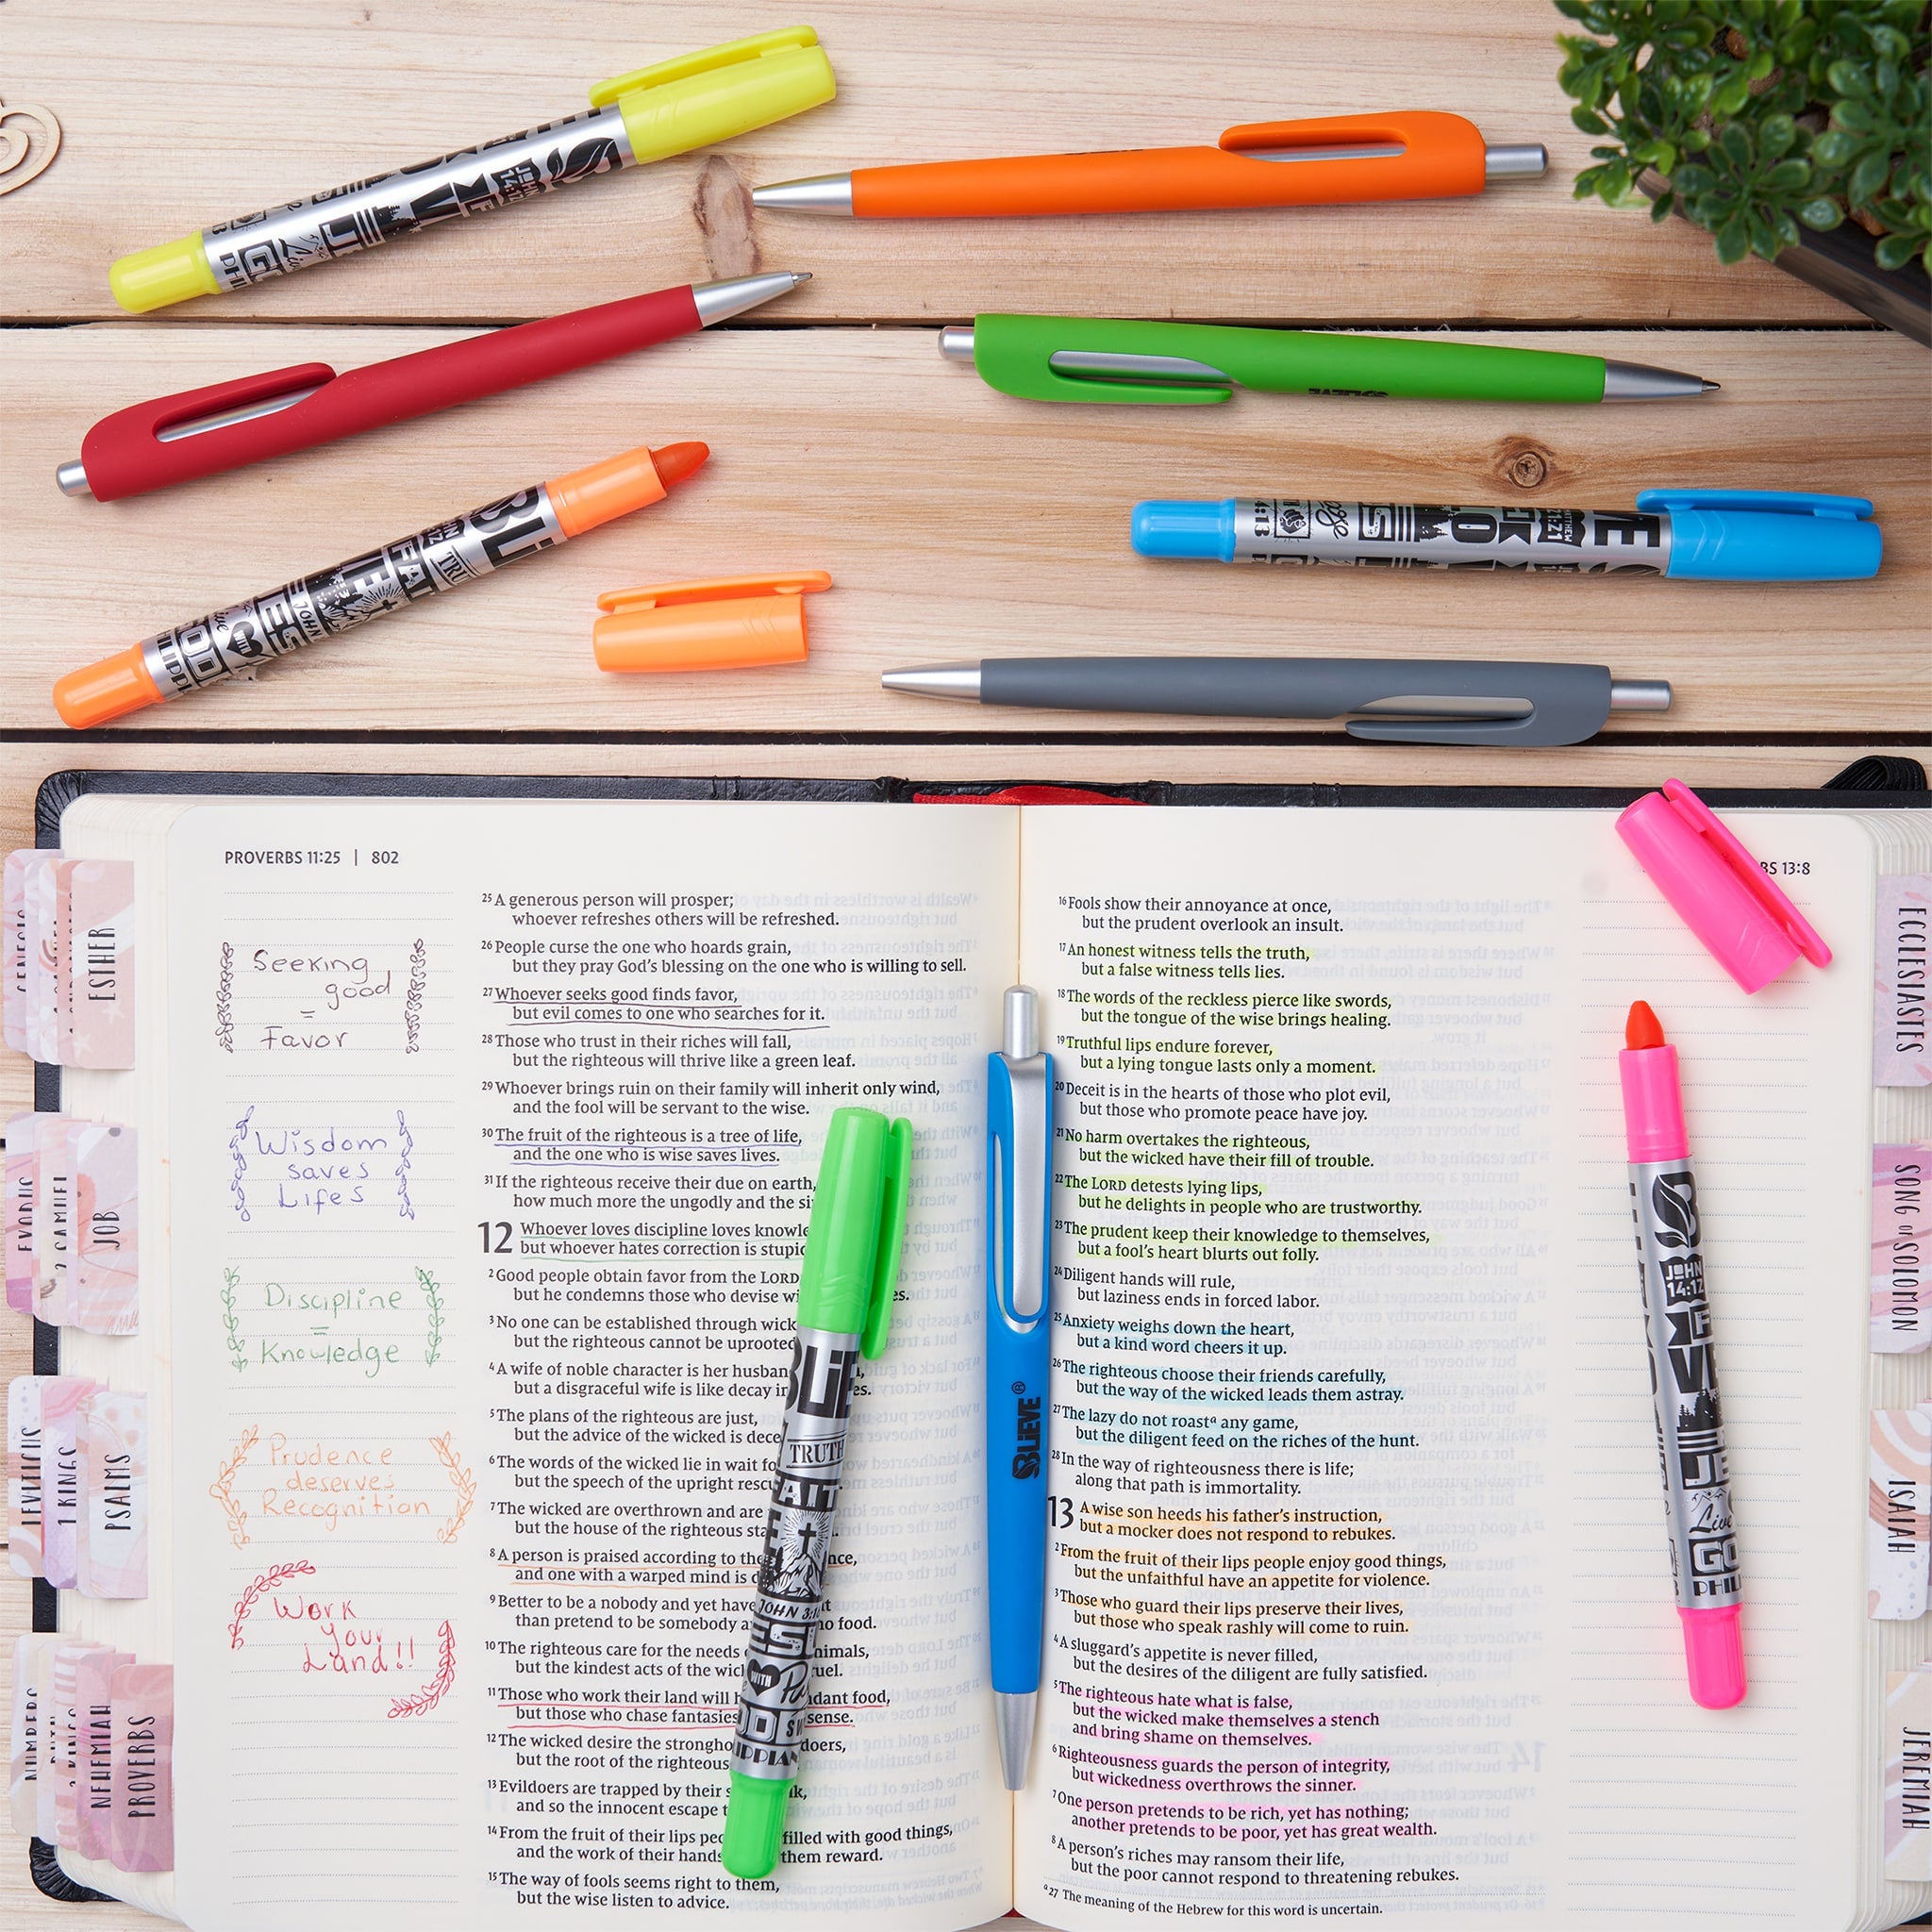 PROVERBS 11:25 | 802
Seeking
good
=
Favor
Wisdom
saves
Lifes
Discipline
=
Knowledge
Prudence
deserves
Recognition
Work
your
Land!!
25 A generous person will prosper;
whoever refreshes others will be refreshed.
26 People curse the one who hoards grain,
but they pray God's blessing on the one who is willing to sell.
27 Whoever seeks good finds favor,
but evil comes to one who searches for it.
28 Those who trust in their riches will fall,
but the righteous will thrive like a green leaf.
29 Whoever brings ruin on their family will inherit only wind,
and the fool will be servant to the wise.
30 The fruit of the righteous is a tree of life,
and the one who is wise saves lives.
31 If the righteous receive their due on earth,
how much more the ungodly and the
12 Whoever loves discipline loves
but whoever hates correction is
2 Good people obtain favor from the LORD
but he condemns those who devise
3 No one can be established through
but the righteous cannot be uprooted
4 A wife of noble character is her
but a disgraceful wife is like decay
5 The plans of the righteous are just,
but the advice of the wicked is
6 The words of the wicked lie in wait
but the speech of the upright
7 The wicked are overthrown and are
but the house of the righteous
8 A person is praised according to
and one with a warped mind is
9 Better to be a nobody and yet have
than pretend to be somebody no food.
10 The righteous care for the needs
but the kindest acts of the
11 Those who work their land will food,
but those who chase fantasies sense.
12 The wicked desire the
but the root of the righteous
13 Evildoers are trapped by their
and so the innocent escape
14 From the fruit of their lips filled with good things,
and the work of their hands them reward.
15 The way of fools seems right to them,
but the wise listen to advice.
BS 13:8
16 Fools show their annoyance at once,
but the prudent overlook an insult.
17 An honest witness tells the truth,
but a false witness tells lies.
18 The words of the reckless pierce like swords,
but the tongue of the wise brings healing.
19 Truthful lips endure forever,
but a lying tongue lasts only a moment.
20 Deceit is in the hearts of those who plot evil,
but those who promote peace have joy.
21 No harm overtakes the righteous,
but the wicked have their fill of trouble.
22 The LORD detests lying lips,
but he delights in people who are trustworthy.
23 The prudent keep their knowledge to themselves,
but a fool's heart blurts out folly.
24 Diligent hands will rule,
but laziness ends in forced labor.
25 Anxiety weighs down the heart,
but a kind word cheers it up.
26 The righteous choose their friends carefully,
but the way of the wicked leads them astray.
27 The lazy do not roast a any game,
but the diligent feed on the riches of the hunt.
28 In the way of righteousness there is life;
along that path is immortality.
13 A wise son heeds his father's instruction,
but a mocker does not respond to rebukes.
2 From the fruit of their lips people enjoy good things,
but the unfaithful have an appetite for violence.
3 Those who guard their lips preserve their lives,
but those who speak rashly will come to ruin.
4 A sluggard's appetite is never filled,
but the desires of the diligent are fully satisfied.
5 The righteous hate what is false,
but the wicked make themselves a stench
and bring shame on themselves.
6 Righteousness guards the person of integrity,
but wickedness overthrows the sinner.
7 One person pretends to be rich, yet has nothing;
another pretends to be poor, yet has great wealth.
8 A person's riches may ransom their life,
but the poor cannot respond to threatening rebukes.
a 27 The meaning of the Hebrew for this word is uncertain.
ESTHER
JOB
LEVITICUS
1 KINGS
PSALMS
NUMBERS
NEHEMIAH
PROVERBS
ECCLESIASTES
SONG of SOLOMON
ISAIAH
JEREMIAH
BLIEVE®
TRUTH
JOHN
WITH
JOHN
14:12
Live